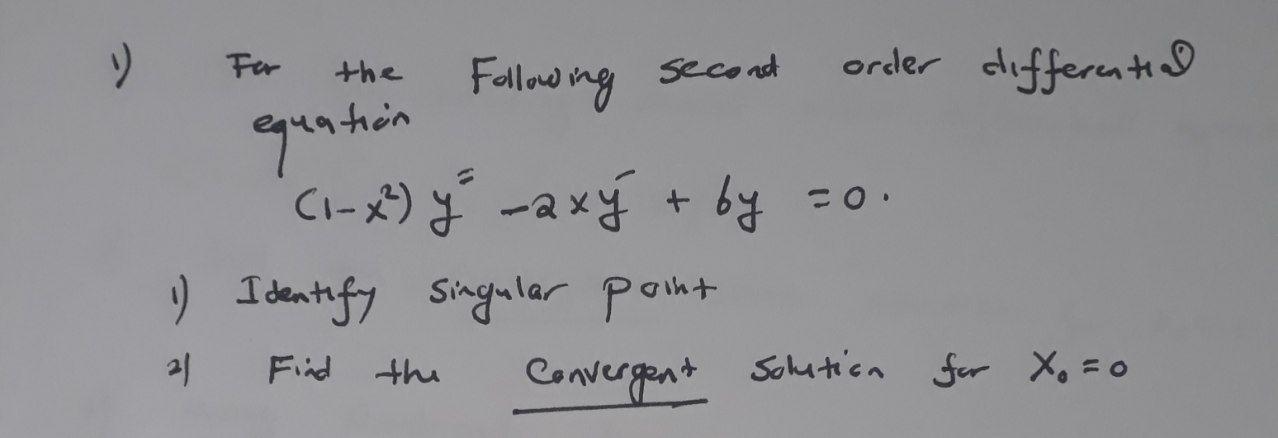 1) For the Following second order differential
equation
(1-x²) y″ -2xy′ + 6y = 0.
1) Identify singular point
2) Find the Convergent Solution for X₀ = 0